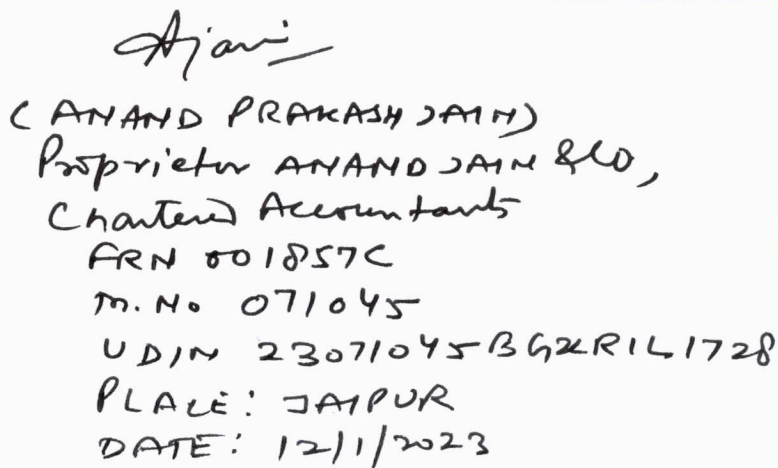 Ajain
(ANAND PRAKASH JAIN)
Proprietor ANAND JAIN & CO,
Chartered Accountants
FRN 001857C
M. No 071045
UDIN 23071045BGXRIL1728
PLACE: JAIPUR
DATE: 12/1/2023